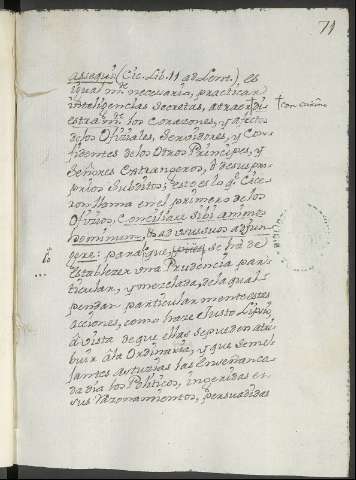 71
assequi (Cic. Lib. 11 ad Lent.), es
igual mte. necesario, practicar
inteligencias secretas, atraer di
estra mte. los corazones, y afectos
de los Ofiziales, Servidores, y Con
fidentes de los Otros Principes, y
Señores extrangeros, ó de sus pro
prios subditos; esto es lo q. Cice
ron llama en el primero de los
Ofizios, Conciliare sibi animos
hominum, & ad usus suos adjun
gere: para q. se ha de
establezer una Prudencia par
ticular, y mezclada, de la qual
pendan particularmente estas
acciones, como haze el Justo Lipsio,
â vista de que ellas se pueden atri
buir â la Ordinaria, y que seme
jantes astuzias las Enseñan ca
da dia los Politicos, ingeridas en
sus razonamientos, persuadidas